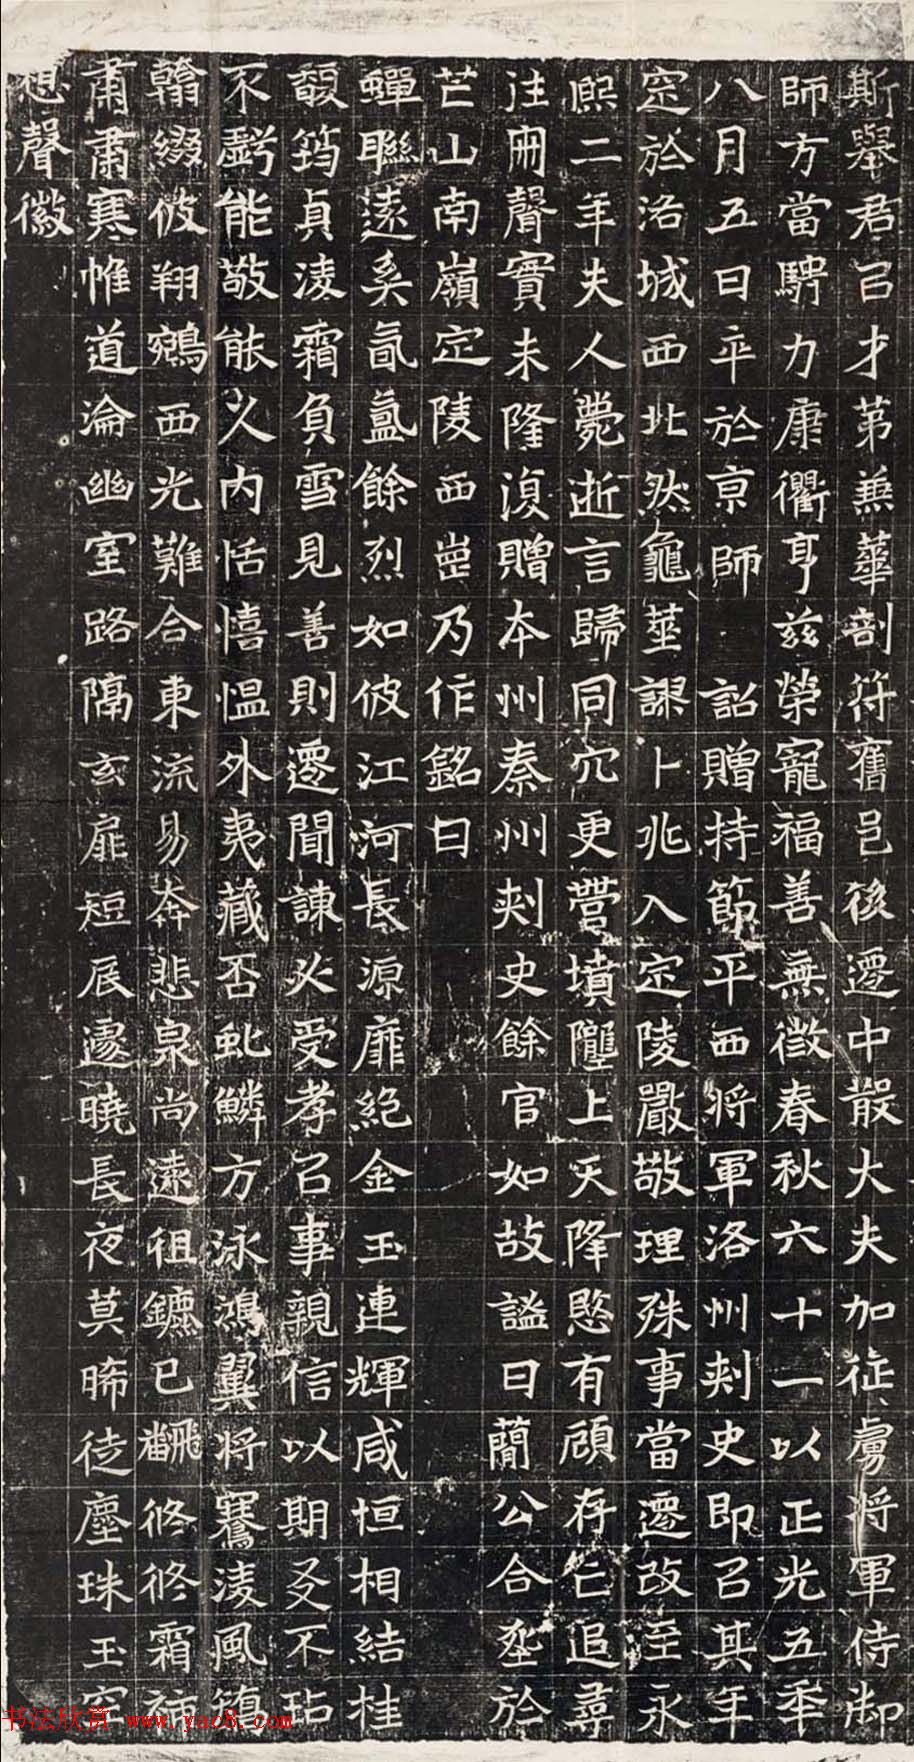 斯舉君㠯才苐兼華剖符舊邑後遷中散大夫加征虜將軍侍御
師方當騁力康衢亨茲榮寵福善無徵春秋六十一以正光五年
八月五日卒於京師 詔贈持節平西將軍洛州刾史即㠯其年
窆於洛城西北然龜莁謬卜兆入定陵嚴敬理殊事當遷改至永
熙二年夫人薨逝言歸同穴更營墳隴上天降愍有顧存亡追尋
注冊聲實未隆復贈本州秦州刾史餘官如故謚曰簡公合於
芒山南嶺定陵西崗乃作銘曰
蟬聯遠系氤氳餘烈如彼江河長源靡絕金玉連輝咸恒相結桂
馥筠貞淩霜負雪見善則遷聞諫必受孝㠯事親信以期友不玷
不虧能敬能久內恬憘慍外夷藏否虬鱗方泳鴻翼將騫淩風頓
翰綴彼翔鵷西光難合東流易奔悲泉尚遠徂鑣已飜攸攸霜旆
肅肅寒帷道淪幽室路隔玄扉短辰遽曉長夜莫晞徒塵珠玉空
想聲徽
书法欣赏 www.yac8.com